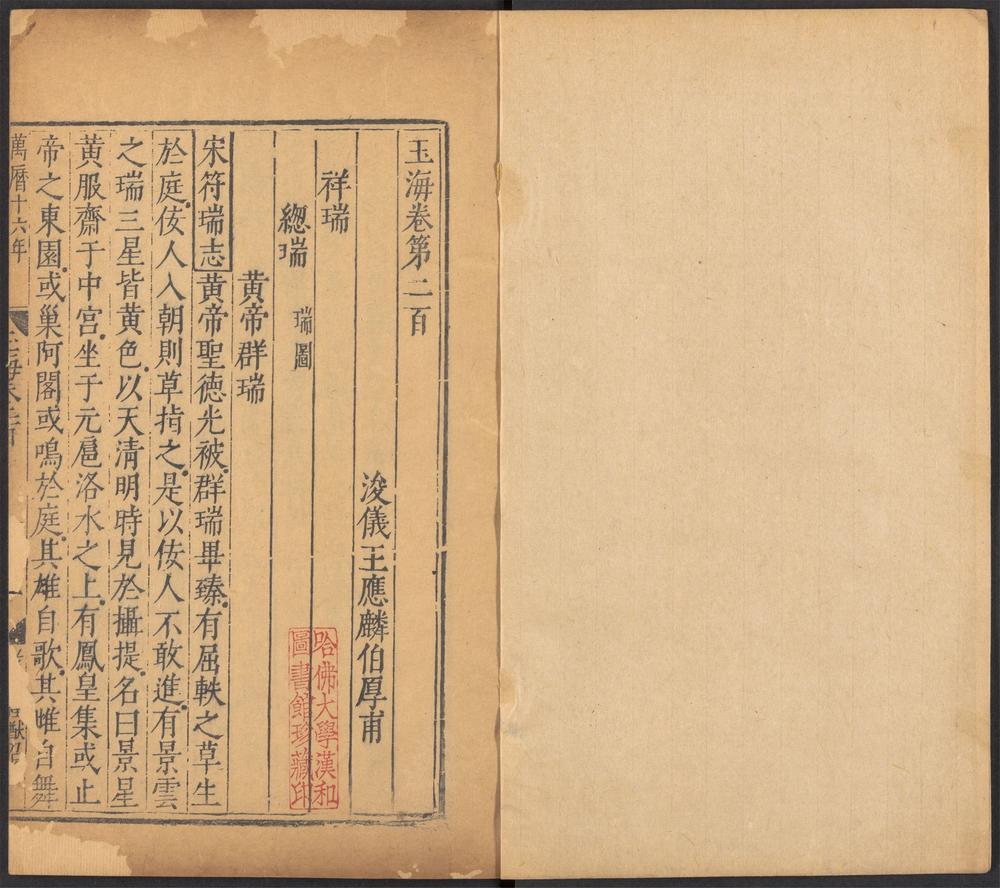 玉海卷第二百
浚儀王應麟伯厚甫
祥瑞
緫瑞
瑞圖
黃帝群瑞
宋符瑞志黃帝聖德光被群瑞畢臻有屈軼之草生
於庭佞人入朝則草指之是以佞人不敢進有景雲
之瑞三星皆黃色以天清明時見於攝提名曰景星
黃服齋于中宮坐于元扈洛水之上有鳳皇集或止
帝之東園或巢阿閣或鳴於庭其雄自歌其雌自舞
萬曆十六年
哈佛大學漢和
圖書館珍藏印